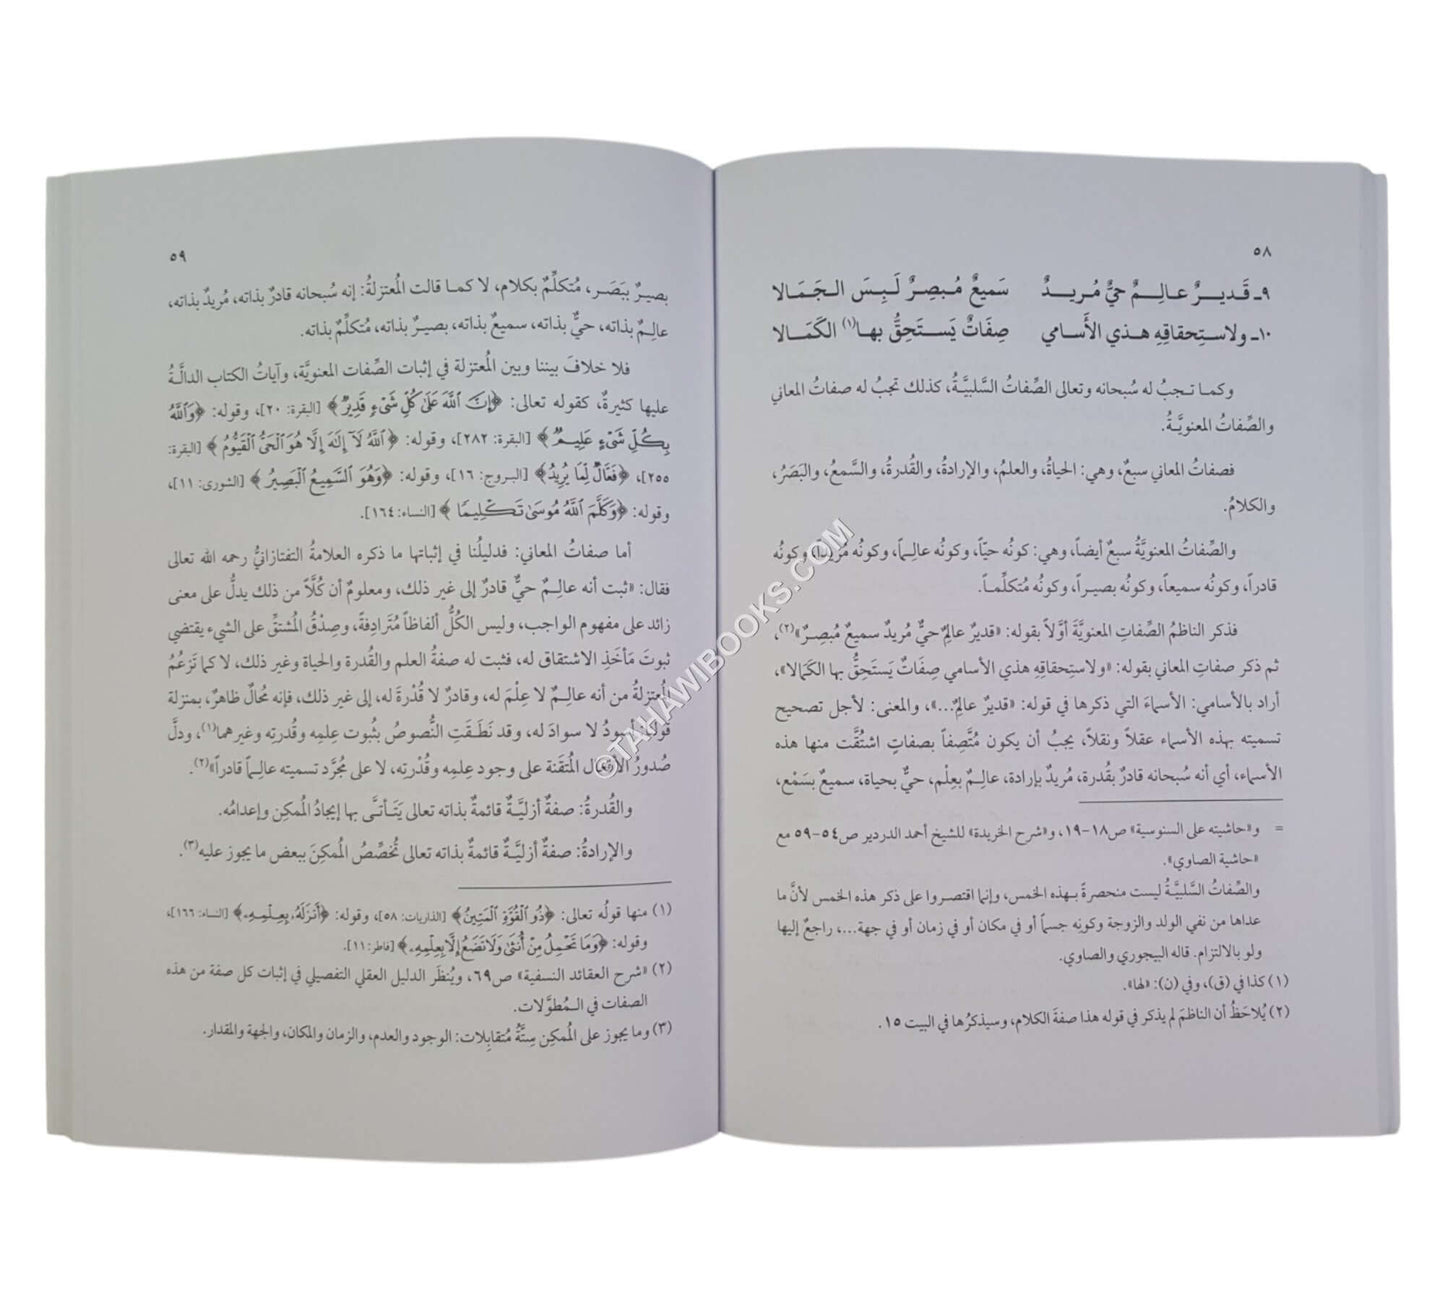 ٥٨
٩ـ قَديـرٌ عـالِـمٌ حيٌّ مُـريـدٌ سَميعٌ مُبصِرٌ لَـبِسَ الـجَمَـالا
١٠ـ ولاستِحقاقِهِ هـذي الأَسامي صِفَاتٌ يَستَحِقُّ بها(١) الكَمَالا
وكمـا تـجبُ له سُبحانه وتعالى الصِّفاتُ السَّلبيَّـةُ، كذلك تجبُ له صفاتُ المعاني
والصِّفاتُ المعنويَّـةُ.
فصفاتُ المعاني سبعٌ، وهي: الحياةُ، والعلمُ، والإرادةُ، والقُدرةُ، والسَّمعُ، والبَصَرُ،
والكلامُ.
والصِّفاتُ المعنويَّةُ سبعٌ أيضاً، وهي: كونُه حيّاً، وكونُه عالِـماً، وكونُه مُريداً، وكونُه
قادراً، وكونُه سميعاً، وكونُه بصيـراً، وكونُه مُتكلِّمـاً.
فذكر الناظمُ الصِّفاتِ المعنويَّةَ أوَّلاً بقوله: «قديرٌ عالِمٌ حيٌّ مُريدٌ سميعٌ مُبصِرٌ»(٢)،
ثم ذكر صفاتِ المعاني بقوله: «ولاستِحقاقِهِ هذي الأسامي صِفاتٌ يَستَحِقُّ بها الكَمَالا»،
أراد بالأسامي: الأسماءَ التي ذكرها في قوله: «قديرٌ عالِمٌ...»، والمعنى: لأجل تصحيح
تسميته بهذه الأسماء عقلاً ونقلاً، يجبُ أن يكون مُتَّصِفاً بصفاتٍ اشتُقَّت منها هذه
الأسماء، أي أنه سُبحانه قادرٌ بقُدرة، مُريدٌ بإرادة، عالِـمٌ بعِلْم، حيٌّ بحياة، سميعٌ بسَمْع،
= و«حاشيته على السنوسية» ص١٨-١٩، و«شرح الخريدة» للشيخ أحمد الدردير ص٥٤-٥٩ مع
«حاشية الصاوي».
والصِّفاتُ السَّلبيَّـةُ ليست منحصرةً بـهذه الخمس، وإنما اقتصـروا على ذكر هذه الخمس لأنَّ ما
عداها من نفي الولد والزوجة وكونِه جسماً أو في مكان أو في زمان أو في جهة...، راجعٌ إليها
ولو بالالتزام. قاله البيجوري والصاوي.
(١) كذا في (ق)، وفي (ن): «لها».
(٢) يُلاحَظُ أن الناظمَ لم يذكر في قوله هذا صفةَ الكلام، وسيذكرُها في البيت ١٥.
٥٩
بصيـرٌ ببَصَـر، مُتكلِّمٌ بكلام، لا كمـا قالت المُعتزلةُ: إنه سُبحانه قادرٌ بذاته، مُريدٌ بذاته،
عالِـمٌ بذاته، حيٌّ بذاته، سميعٌ بذاته، بصيـرٌ بذاته، مُتكلِّمٌ بذاته.
فلا خلافَ بيننا وبين المُعتزلة في إثبات الصِّفات المعنويَّة، وآياتُ الكتاب الدالَّـةُ
عليها كثيرةٌ، كقوله تعالى: ﴿إِنَّ ٱللَّهَ عَلَىٰ كُلِّ شَىْءٍ قَدِيرٌ﴾ [البقرة: ٢٠]، وقوله: ﴿وَٱللَّهُ
بِكُلِّ شَىْءٍ عَلِيمٌ﴾ [البقرة: ٢٨٢]، وقوله: ﴿ٱللَّهُ لَآ إِلَٰهَ إِلَّا هُوَ ٱلْحَىُّ ٱلْقَيُّومُ﴾ [البقرة:
٢٥٥]، ﴿فَعَّالٌ لِّمَا يُرِيدُ﴾ [البـروج: ١٦]، وقوله: ﴿وَهُوَ ٱلسَّمِيعُ ٱلْبَصِيرُ﴾ [الشورى: ١١]،
وقوله: ﴿وَكَلَّمَ ٱللَّهُ مُوسَىٰ تَكْلِيمًا﴾ [النساء: ١٦٤].
أما صفاتُ المعاني: فدليلُنا في إثباتها ما ذكره العلامةُ التفتازانيُّ رحمه الله تعالى
فقال: «ثبت أنه عالِـمٌ حيٌّ قادرٌ إلى غير ذلك، ومعلومٌ أن كُلَّاً من ذلك يدلُّ على معنى
زائد على مفهوم الواجب، وليس الكُلُّ ألفاظاً مُتَرادِفةً، وصِدْقُ المُشتقِّ على الشيء يقتضي
ثبوتَ مَأخَذِ الاشتقاق له، فثبت له صفةُ العلم والقُدرة والحياة وغير ذلك، لا كما تَزعُمُ
المُعتزلةُ من أنه عالِـمٌ لا عِلْمَ له، وقادرٌ لا قُدْرةَ له، إلى غير ذلك، فإنه مُحالٌ ظاهرٌ، بمنزلة
قولنا: أسودُ لا سوادَ له، وقد نَطَقَتِ النُّصوصُ بثُبوت عِلمِه وقُدرتِه وغيرِهما(١)، ودلَّ
صُدورُ الأفعال المُتقَنة على وجود عِلمِه وقُدْرتِه، لا على مُجرَّد تسميته عالِـماً قادراً»(٢).
والقُدرةُ: صفةٌ أزليَّـةٌ قائمةٌ بذاته تعالى يَتَـأتـَّى بها إيجادُ المُمكِن وإعدامُه.
والإرادةُ: صفةٌ أزليَّـةٌ قائمةٌ بذاته تعالى تُخصِّصُ المُمكِنَ ببعض ما يجوز عليه(٣).
(١) منها قولُه تعالى: ﴿ذُو ٱلْقُوَّةِ ٱلْمَتِينُ﴾ [الذاريات: ٥٨]، وقوله: ﴿أَنزَلَهُۥ بِعِلْمِهِۦ﴾ [النساء: ١٦٦]،
وقوله: ﴿وَمَا تَحْمِلُ مِنْ أُنثَىٰ وَلَا تَضَعُ إِلَّا بِعِلْمِهِۦ﴾ [فاطر: ١١].
(٢) «شرح العقائد النسفية» ص٦٩، ويُنظَر الدليل العقلي التفصيلي في إثبات كل صفة من هذه
الصفات في الـمُطوَّلات.
(٣) وما يجوز على المُمكِن سِتَّةُ مُتقابِلات: الوجود والعدم، والزمان والمكان، والجهة والمقدار.
©TAHAWIBOOKS.COM